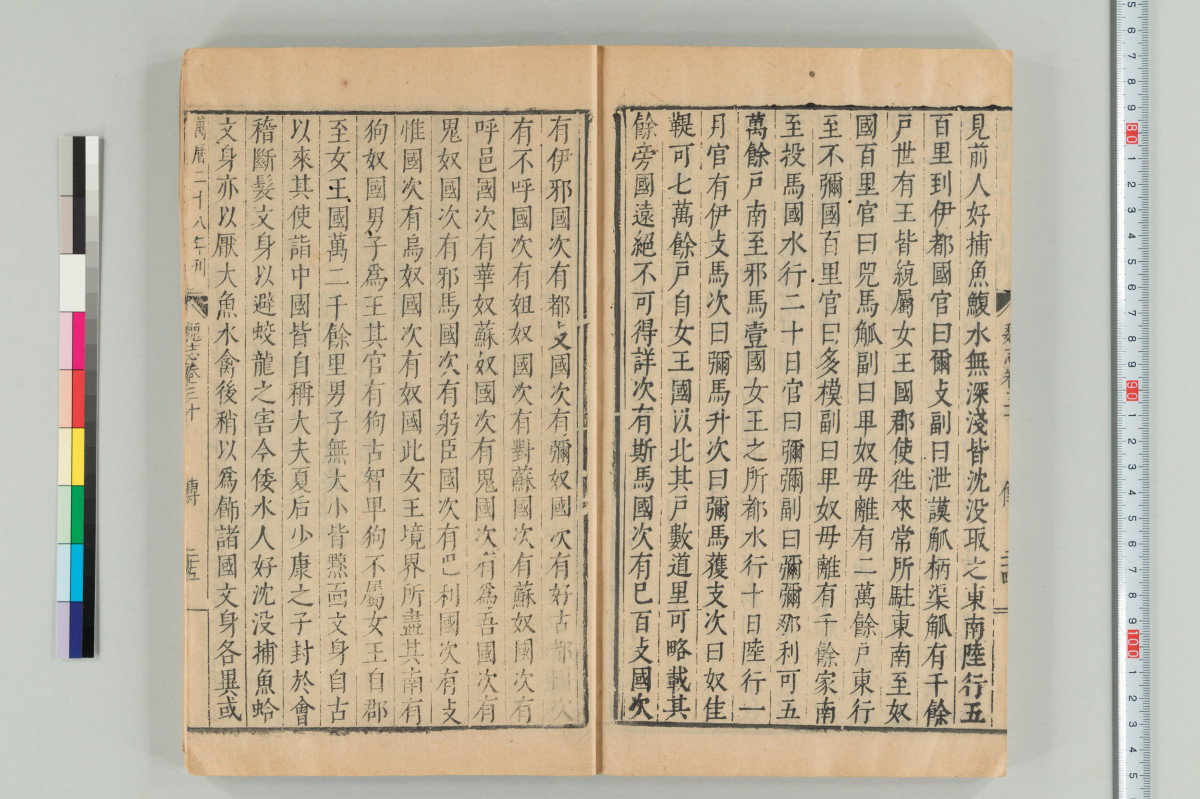 見前人好捕魚鰒水無深淺皆沈没取之東南陸行五
百里到伊都國官曰爾支副曰泄謨觚柄渠觚有千餘
戸世有王皆統屬女王國郡使徃來常所駐東南至奴
國百里官曰兕馬觚副曰卑奴毋離有二萬餘戸東行
至不彌國百里官曰多模副曰卑奴毋離有千餘家南
至投馬國水行二十日官曰彌彌副曰彌彌那利可五
萬餘戸南至邪馬壹國女王之所都水行十日陸行一
月官有伊支馬次曰彌馬升次曰彌馬獲支次曰奴佳
鞮可七萬餘戸自女王國以北其戸數道里可略載其
餘旁國遠絕不可得詳次有斯馬國次有巳百支國次
魏志卷三十
傳
二十四
有伊邪國次有都支國次有彌奴國次有好古都國次
有不呼國次有姐奴國次有對蘇國次有蘇奴國次有
呼邑國次有華奴蘇奴國次有鬼國次有爲吾國次有
鬼奴國次有邪馬國次有躬臣國次有巴利國次有支
惟國次有烏奴國次有奴國此女王境界所盡其南有
狗奴國男子爲王其官有狗古智卑狗不屬女王自郡
至女王國萬二千餘里男子無大小皆黥面文身自古
以來其使詣中國皆自稱大夫夏后少康之子封於會
稽斷髮文身以避蛟龍之害今倭水人好沈没捕魚蛤
文身亦以厭大魚水禽後稍以爲飾諸國文身各異或
萬曆二十八年刊
魏志卷三十
傳
二十五
5 6 7 8 9 80 1 2 3 4 5 6 7 8 9 90 1 2 3 4 5 6 7 8 9 100 1 2 3 4 5